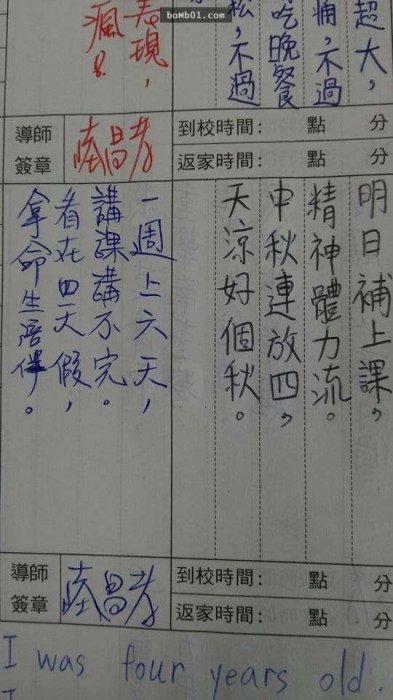 bomb01.com
超大，
，不過
吃晚餐
，不過
表現，
瘋！
導師
簽章
到校時間： 點 分
返家時間： 點 分
明日補上課，
精神體力流。
中秋連放四，
天涼好個秋。
一週上六天，
講課講不完。
看在四天假，
拿命生陪伴。
導師
簽章
到校時間： 點 分
返家時間： 點 分
I was four years old.